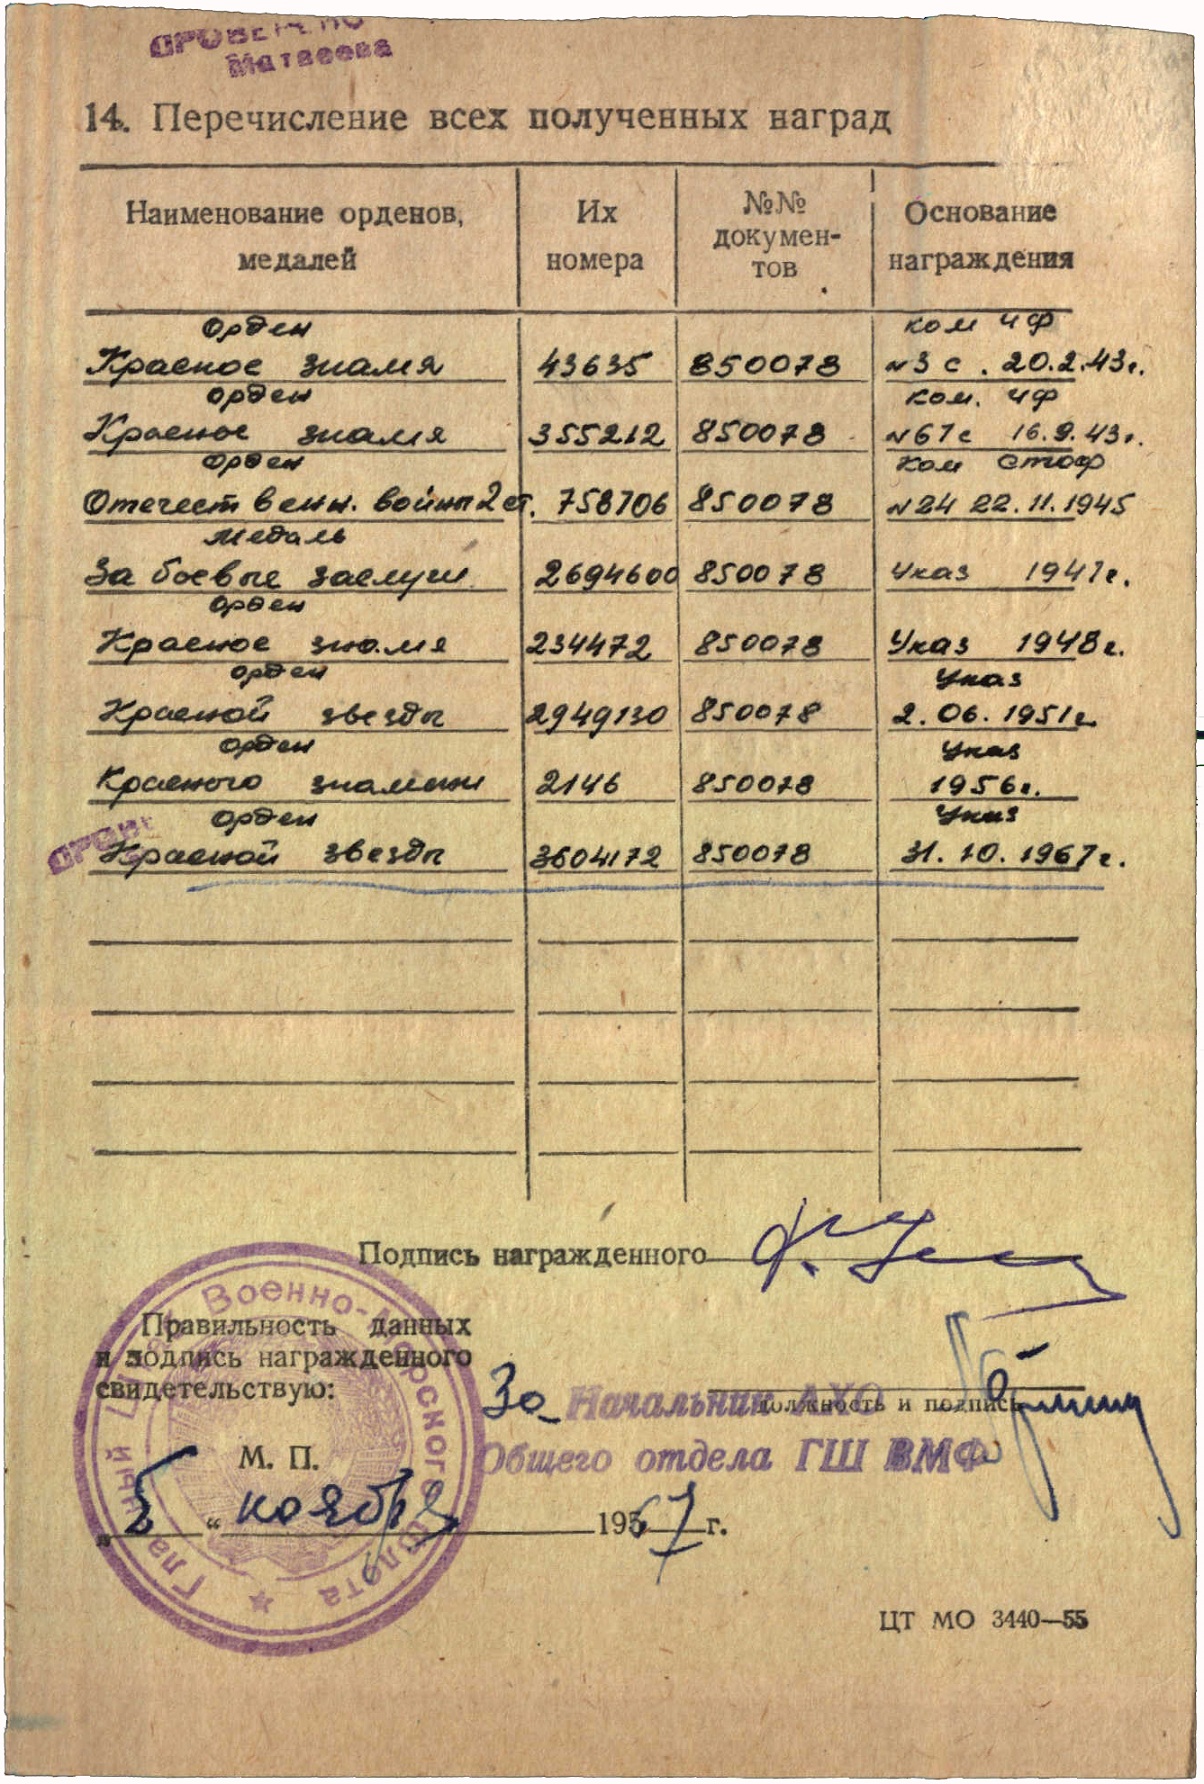 ПРОВЕРЕНО
Матвеева
14. Перечисление всех полученных наград
Наименование орденов, медалей Их номера №№ докумен-тов Основание награждения
Орден ком ЧФ
Красное знамя 43635 850078 №3 с. 20.2.43г.
Орден ком. ЧФ
Красное знамя 355212 850078 №61с 16.9.43г.
Орден ком СТОФ
Отечествен. войны 2 ст. 758706 850078 №24 22.11.1945
Медаль
За боевые заслуги 2694600 850078 Указ 1947г.
Орден
Красное знамя 234472 850078 Указ 1948г.
Орден Указ
Красной звезды 2949130 850078 2.06.1951г.
Орден Указ
Красного знамени 2146 850078 1956г.
Орден Указ
Красной звезды 3604172 850078 31.10.1967г.
Подпись награжденного
Правильность данных
и подпись награжденного
свидетельствую:
За Начальник АХО
должность и подпись
Общего отдела ГШ ВМФ
М. П.
„5“ ноября 1967 г.
Главный Штаб Военно-Морского Флота
ЦТ МО 3440—55